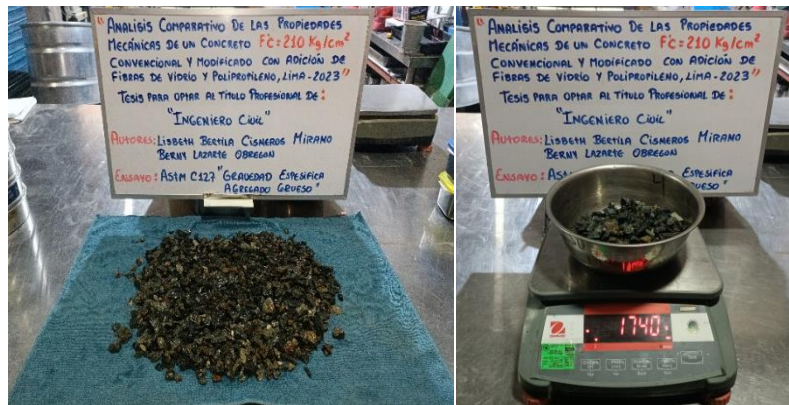 "ANALISIS COMPARATIVO DE LAS PROPIEDADES
MECÁNICAS DE UN CONCRETO F'C=210 Kg/cm²
CONVENCIONAL Y MODIFICADO CON ADICIÓN DE
FIBRAS DE VIDRIO Y POLIPROPILENO, LIMA-2023"
TESIS PARA OPTAR AL TÍTULO PROFESIONAL DE:
"INGENIERO CIVIL"
AUTORES: LISBETH BERTILA CISNEROS MIRANO
BERNY LAZARTE OBREGON
ENSAYO: ASTM C127 "GRAVEDAD ESPESIFICA
AGREGADO GRUESO"
"ANALISIS COMPARATIVO DE LAS PROPIEDADES
MECÁNICAS DE UN CONCRETO F'C=210 Kg/cm²
CONVENCIONAL Y MODIFICADO CON ADICIÓN DE
FIBRAS DE VIDRIO Y POLIPROPILENO, LIMA-2023"
TESIS PARA OPTAR AL TÍTULO PROFESIONAL DE:
"INGENIERO CIVIL"
AUTORES: LISBETH BERTILA CISNEROS MIRANO
BERNY LAZARTE OBREGON
ENSAYO: AS ESPESIFICA
UESO"
OHAUS
1740